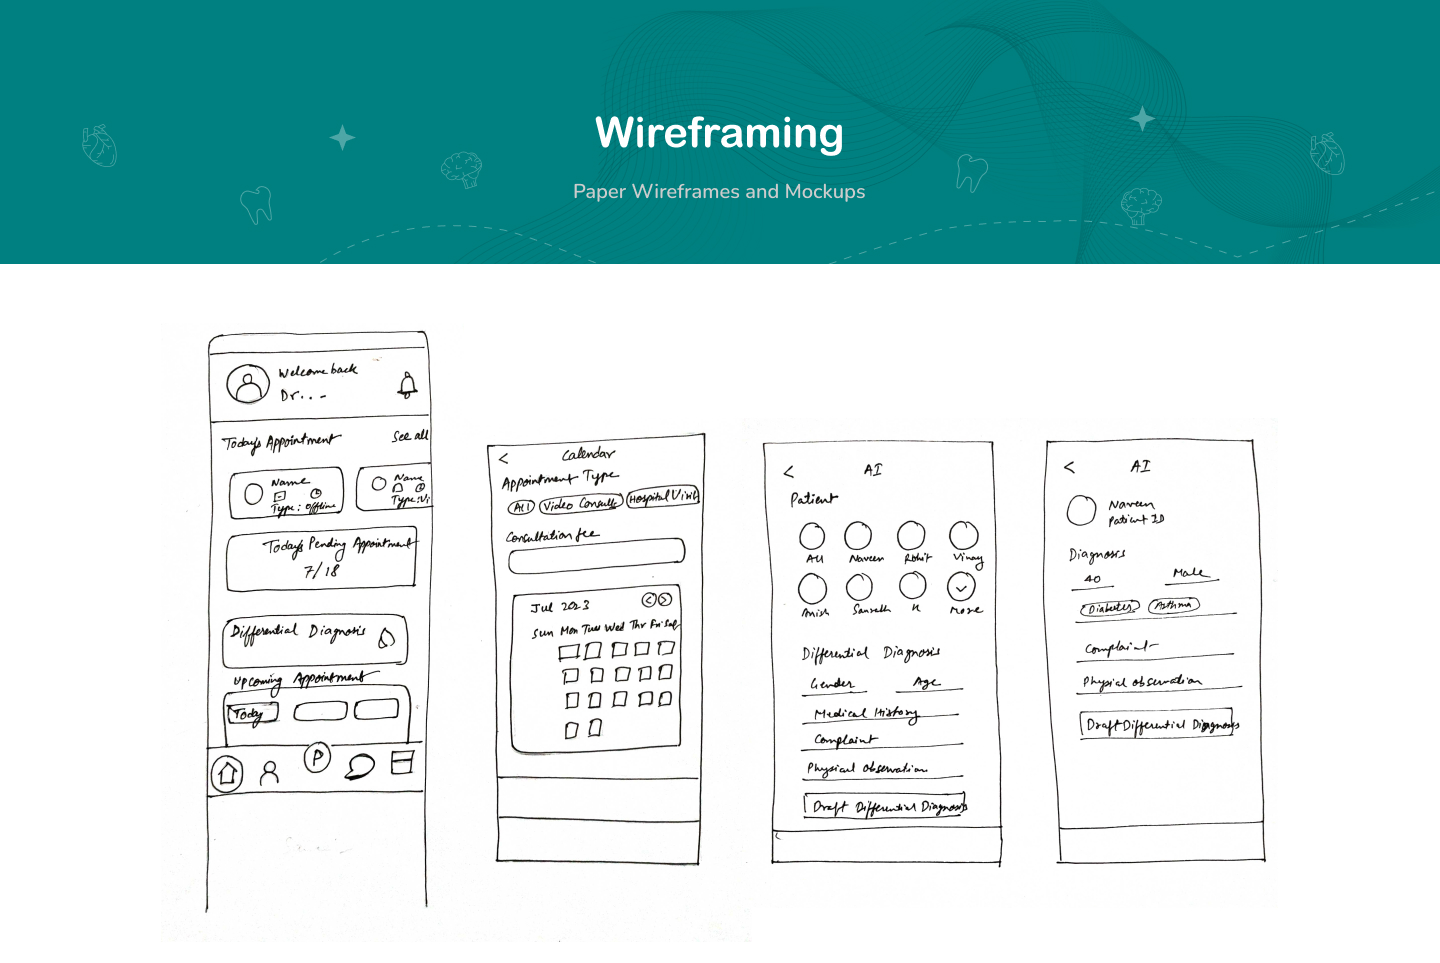 Wireframing
Paper Wireframes and Mockups
Welcome back
Dr...
Today's Appointment See all
Name
Type: Offline
Name
Type: Vi
Today's Pending Appointment
7/18
Differential Diagnosis
Upcoming Appointment
Today
P
< Calendar
Appointment Type
All Video Consult Hospital Visit
Consultation fee
Jul 2023 < >
Sun Mon Tue Wed Thr Fri Sat
< AI
Patient
All Naveen Rohit Vinay
Anish More
Differential Diagnosis
Gender Age
Medical History
Complaint
Physical Observation
Draft Differential Diagnosis
< AI
Naveen
Patient ID
Diagnosis
40 Male
Diabetes Asthma
Complaint
Physical observation
Draft Differential Diagnosis